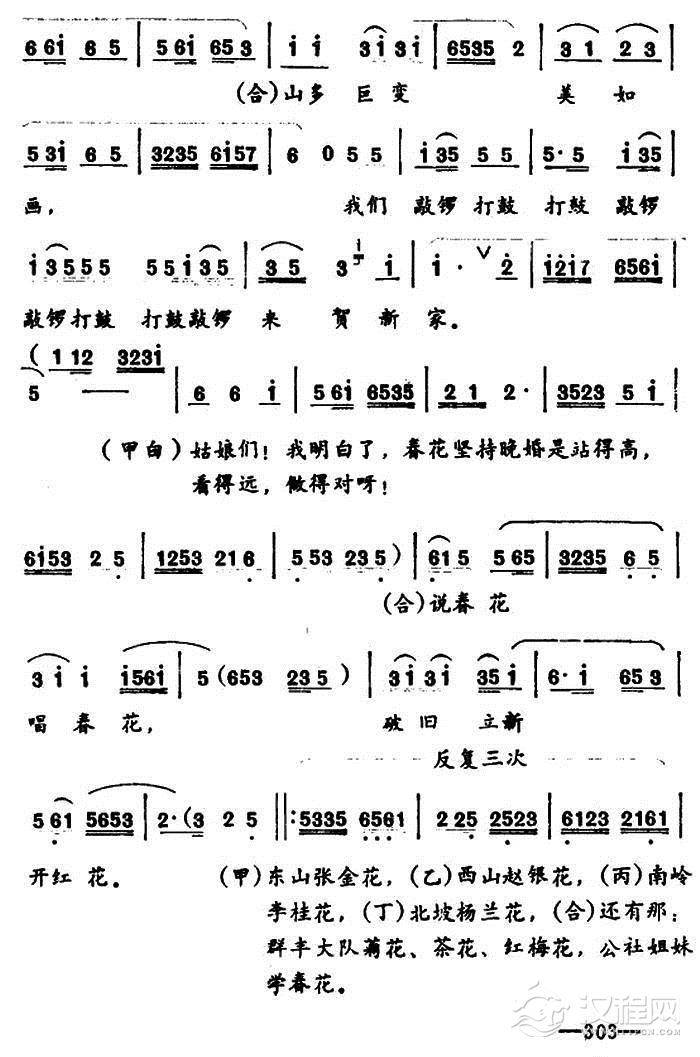 6 6i 6 5 | 5 6i 65 3 | i i 3i 3i | 6535 2 | 3 1 2 3 |
(合)山多 巨 变 美 如
5 3i 6 5 | 3235 6i57 | 6 0 5 5 | i 35 5 5 | 5· 5 i 35 |
画, 我们 敲锣 打鼓 打鼓 敲锣
i 3 5 5 5 5 5 i 3 5 | 3 5 3 i | i · V 2 | i2i7 656i |
敲锣打鼓 打鼓敲锣 来 贺 新 家。
( 1 12 323i
5 — | 6 6 i | 5 6i 6535 | 2 1 2· | 3523 5 i |
(甲白)姑娘们!我明白了,春花坚持晚婚是站得高,
看得远,做得对呀!
6i53 2 5 | 1253 21 6 | 5 53 23 5 ) | 61 5 5 65 | 3235 6 5 |
(合)说春 花
3 i i i56i | 5 (653 23 5 ) | 3i 3i 35 i | 6· i 65 3 |
唱 春 花, 破 旧 立 新
反复三次
5 61 5653 | 2·(3 2 5 ‖: 5335 6561 | 2 25 2523 | 6123 2161 |
开红 花。 (甲)东山张金花,(乙)西山赵银花,(丙)南岭
李桂花,(丁)北坡杨兰花,(合)还有那:
群丰大队菊花、茶花、红梅花,公社姐妹
学春花。
汉程网
—303—